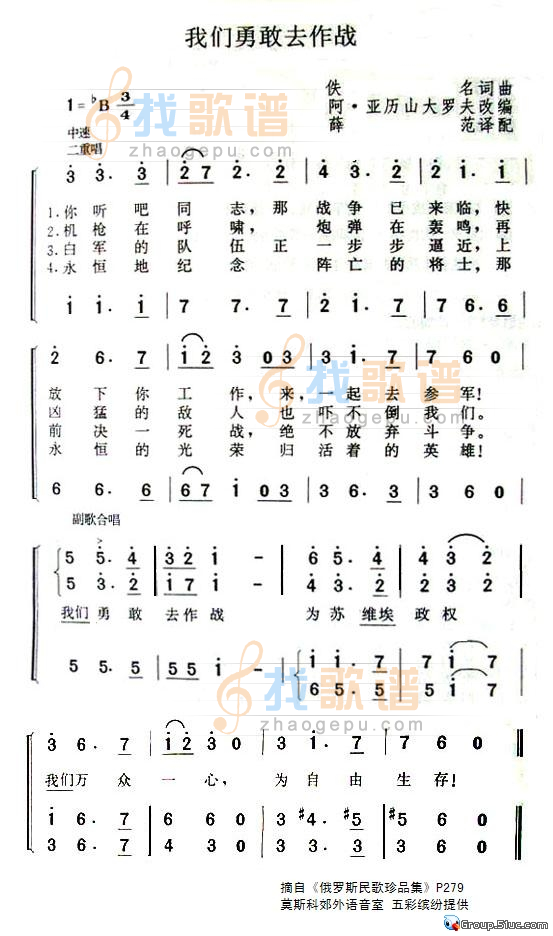 我们勇敢去作战
1=♭B 3/4
佚 名词曲
阿·亚历山大罗夫改编
薛 范译配
中速
二重唱
找歌谱
zhaogepu.com
3 3. 3 | 2 7 2. 2 | 4 3. 2 | 2 1. 1
1.你听吧同志,那战争已来临,快
2.机枪在呼啸,炮弹在轰鸣,再
3.白军的队伍正一步步逼近,上
4.永恒地纪念阵亡的将士,那
1 1. 1 | 7 7. 7 | 2 1. 7 | 7 6. 6
2 6. 7 | 1 2 3 0 3 | 3 1. 7 | 7 6 0
放下你工作,来,一起去参军!
凶猛的敌人也吓不倒我们。
前决一死战,绝不放弃斗争。
永恒的光荣归活着的英雄!
找歌谱
zhaogepu.com
6 6. 6 | 6 7 1 0 3 | 3 6. 3 | 3 6 0
副歌合唱
5 5. 4 | 3 2 1 - | 6 5. 4 | 4 3 2
5 3. 2 | 1 7 1 - | 4 3. 2 | 2 1 2
我们勇敢去作战 为苏维埃政权
5 5. 5 | 5 5 1 - | 1 1. 7 | 7 1 7
6 5. 5 | 5 6 7
找歌谱
zhaogepu.com
3 6. 7 | 1 2 3 0 | 3 1. 7 | 7 6 0
我们万众一心,为自由生存!
1 6. 7 | 1 2 3 0 | 3 #4. #5 | 5 6 0
3 3. 3 | 4 3 3 0 | 3 #2. 3 | 3 6 0
摘自《俄罗斯民歌珍品集》P279
莫斯科郊外语音室 五彩缤纷提供
Group.51uc.com